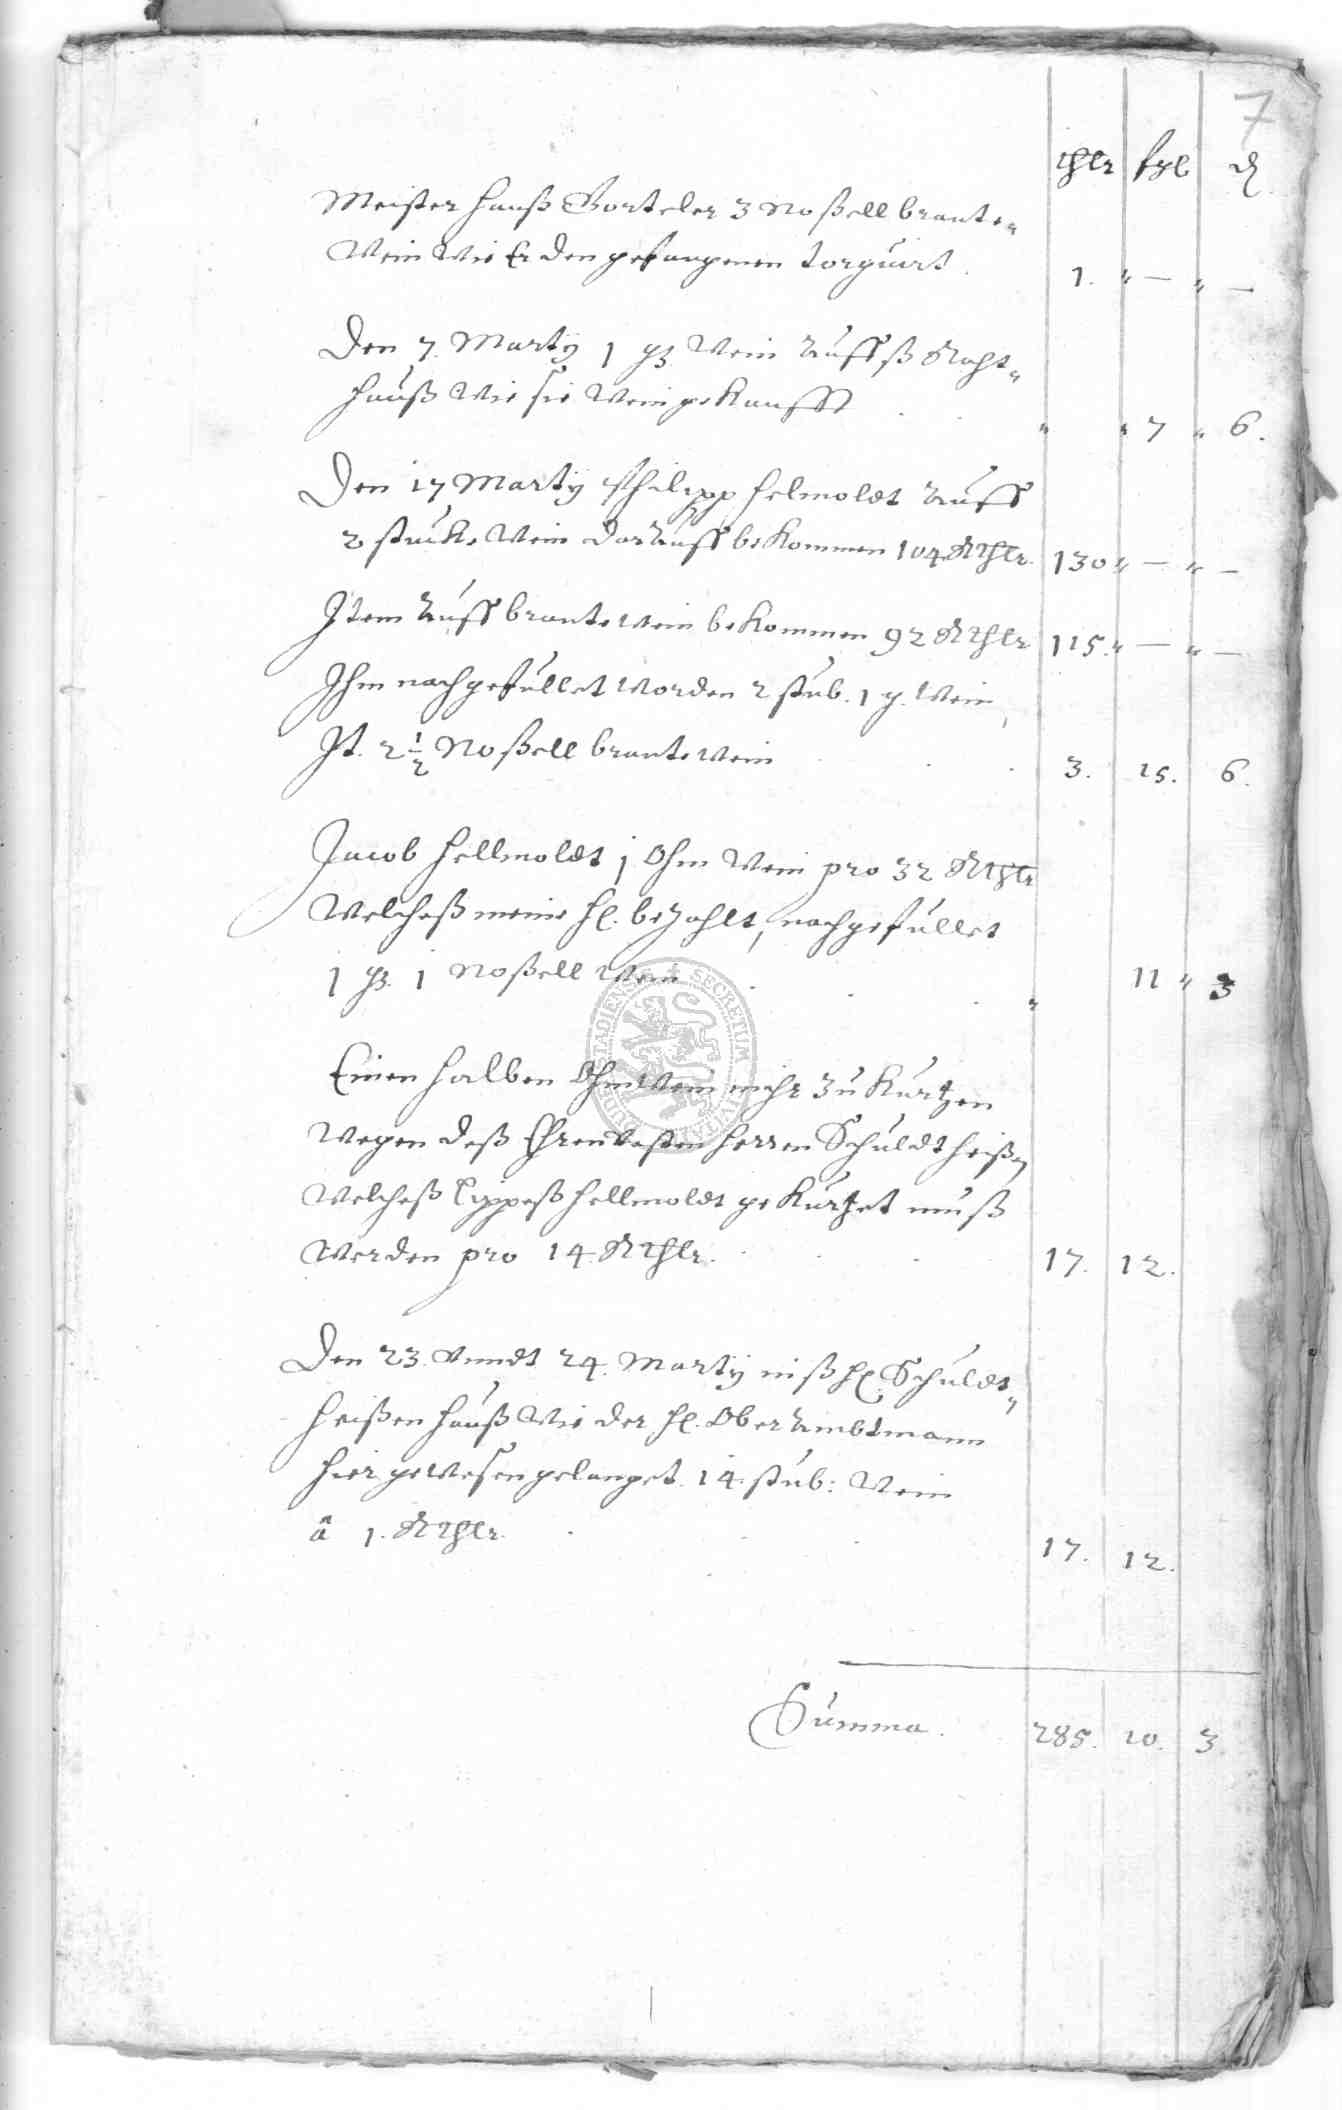 7
thlr ßgl d
Meister Hanß Gorteler 3 Noßell brante„
Wein Wie Er den gefangenen torquirt. 1. „ — „ —
Den 7. Martÿ 1 gß Wein Auffß Raht„
hauß Wie sie Wein gekaufft „ „ 7 „ 6.
Den 17 Martÿ Philipp Helmoldt Auff
2 stucke Wein darAuff bekommen 104 Rthlr. 130 „ — „ —
Item Auff brantewein bekommen 92 Rthlr 115. „ — „ —
Ihm nachgefullet Worden 2 stub. 1 g. Wein,
It. 2 1/2 Noßell brantewein 3. 15. 6.
Jacob Hellmoldt j Ohm Wein pro 32 Rthlr
Welcheß meine H. bezahlt, nachgefullet
j gß. j Noßell Wein „ 11 „ 3
Einen halben Ohm Wein mehr zu Kurtzen
Wegen deß Ehrenvesten Herren Schuldtheißen
Welcheß Lippeß Hellmoldt gekurtzet muß
Werden pro 14. Rthlr. 17. 12.
Den 23. Vnndt 24. Martÿ inß H. Schuldt„
heißen Hauß Wie der H. Ober Ambtmann
hier gewesen gelanget 14. stub: Wein
â 1. Rthlr. 17. 12.
Summa. 285. 10. 3
SECRETUM CIVITATIS DUDERSTADIENSIS